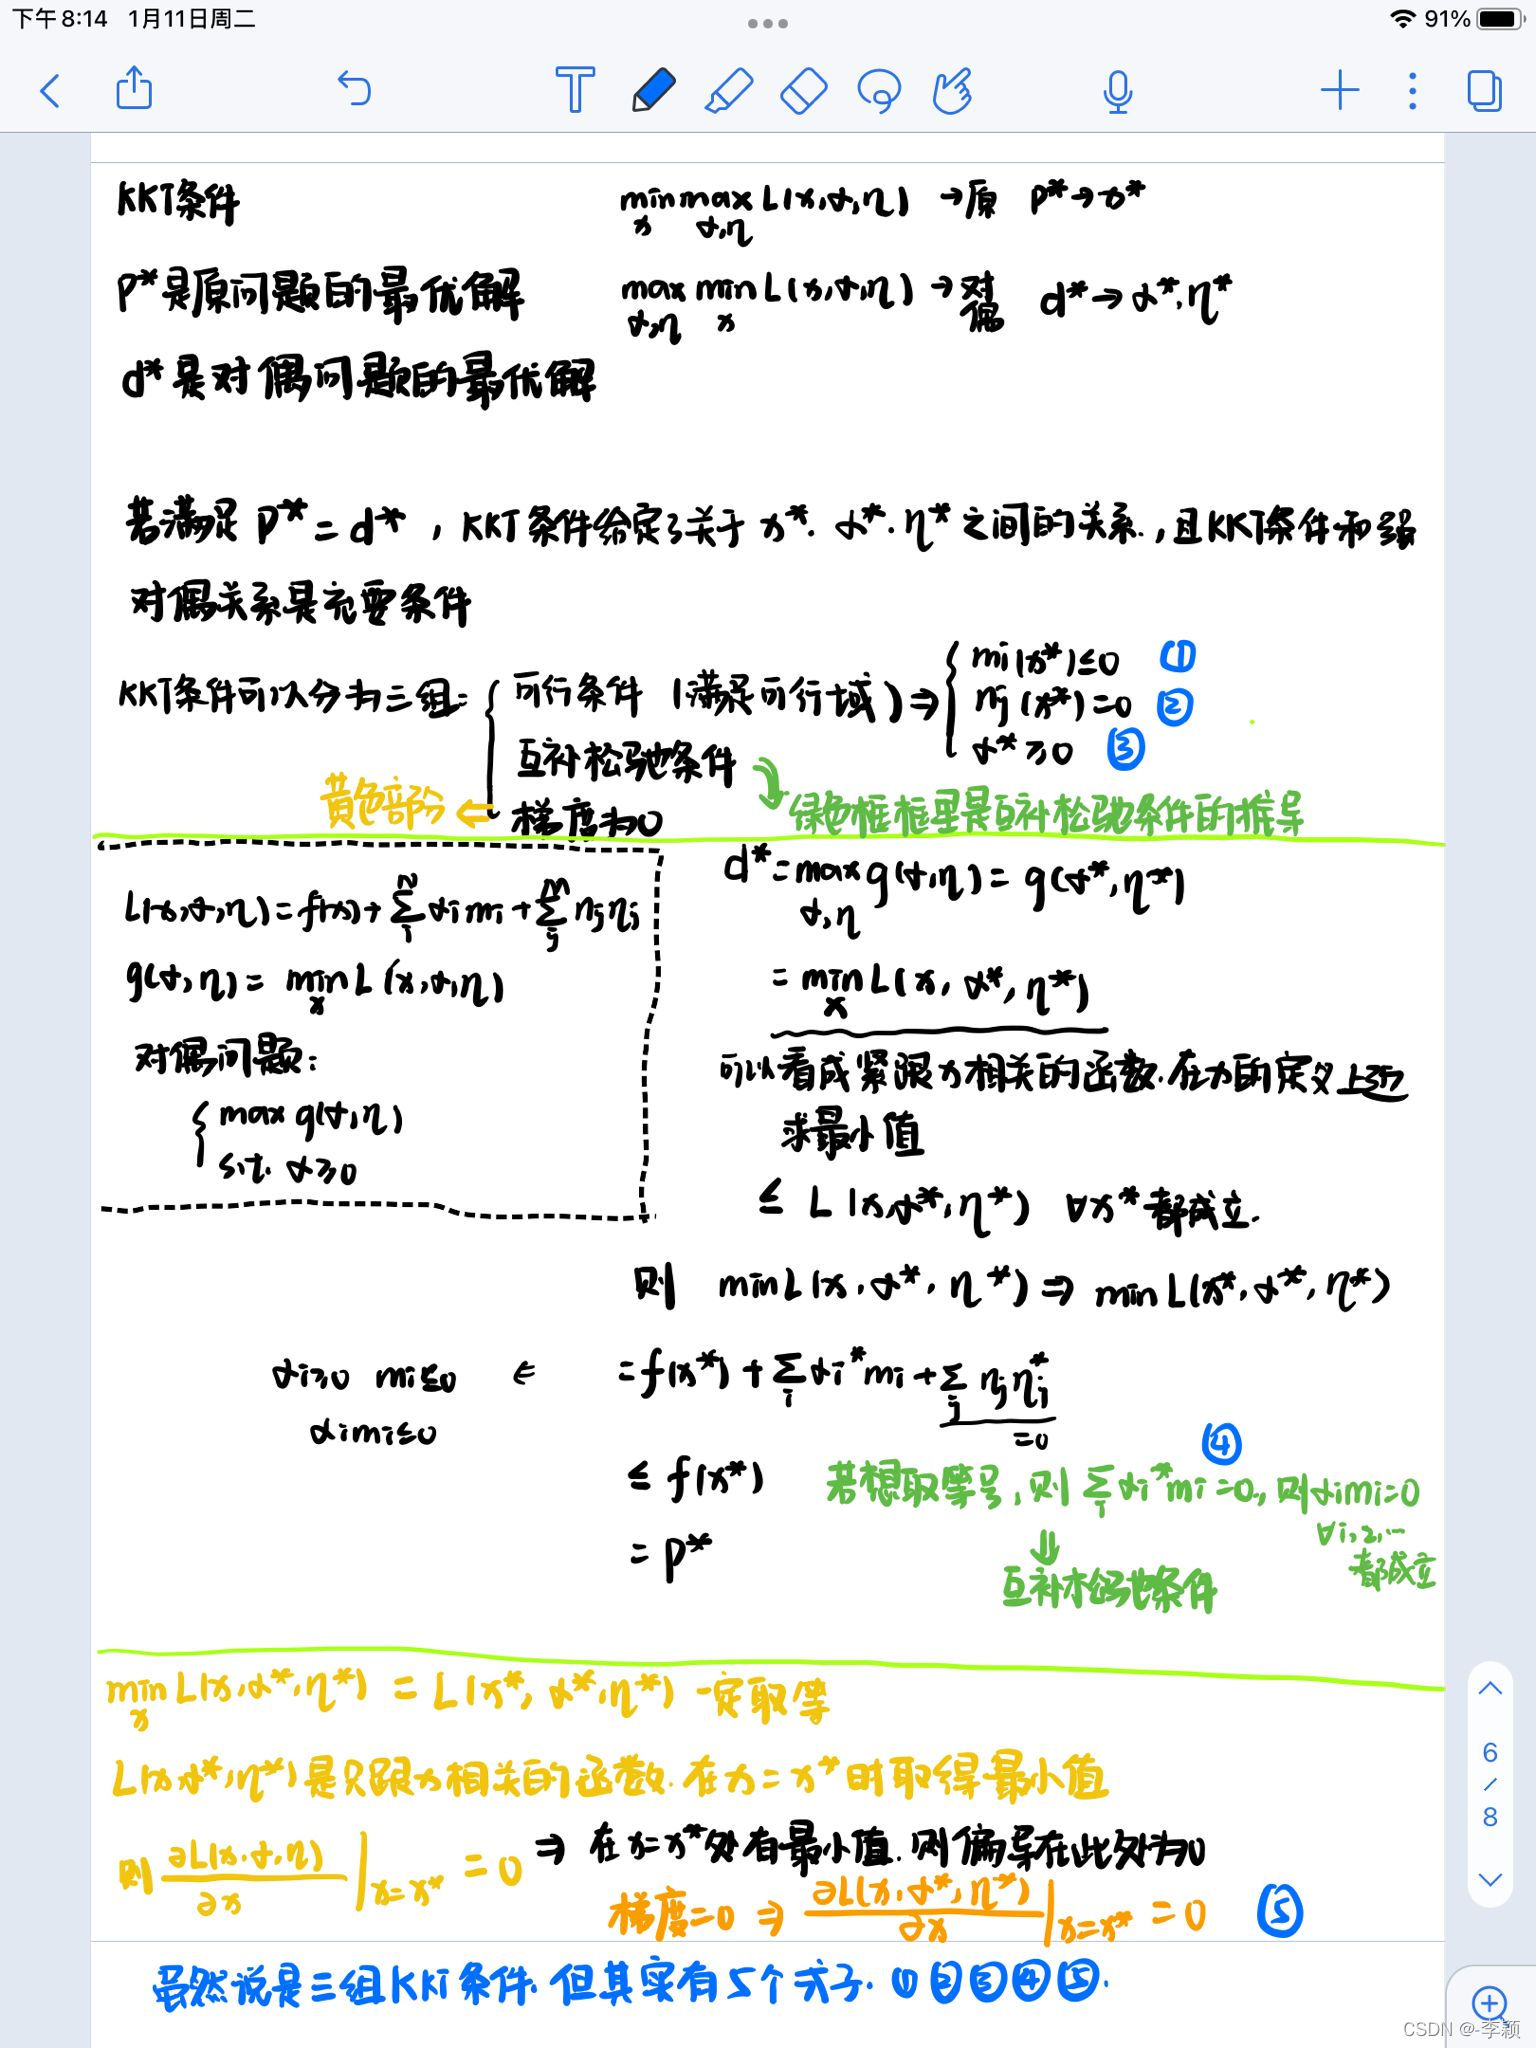 下午8:14 1月11日周二
91%
KKT条件
min max L(x,α,η) →原 p*→x*
x α,η
p*是原问题的最优解
max min L(x,α,η) →对偶 d*→α*,η*
α,η x
d*是对偶问题的最优解
若满足 p*=d*,KKT条件给定了关于 x*. α*.η*之间的关系.,且KKT条件和强
对偶关系是充要条件
KKT条件可以分为三组: { 可行条件 (满足可行域) ⇒ { mi(x*)≤0 ①
nj(x*)=0 ②
互补松弛条件
α*≥0 ③
黄色部分 ⇐ 梯度为0
绿色框框里是互补松弛条件的推导
L(x,α,η)=f(x)+∑αimi+∑njηj
N i M j
g(α,η)= min L(x,α,η)
x
对偶问题:
{ max g(α,η)
s.t. α≥0
d*=max g(α,η)= g(α*,η*)
α,η
= min L(x, α*, η*)
x
可以看成紧跟x相关的函数.在x的定义上
求最小值
≤ L(x,α*,η*) ∀x*都成立.
则 minL(x,α*,η*)⇒ minL(x*,α*,η*)
αi≥0 mi≤0 ⇐ =f(x*)+∑αi*mi+∑njηj*
i j
αimi≤0
=0
④
≤ f(x*) 若想取等号,则∑αi*mi=0,则αimi=0
i
∀i,2,...
都成立
= p*
⇓
互补松弛条件
min L(x,α*,η*) = L(x*, α*,η*) 一定取等
x
L(x,α*,η*)是只跟x相关的函数.在x=x*时取得最小值
则 ∂L(x,α,η)/∂x |x=x* =0 ⇒ 在x=x*处有最小值.则偏导在此处为0
梯度=0 ⇒ ∂L(x,α*,η*)/∂x |x=x* =0 ⑤
虽然说是三组KKT条件.但其实有5个式子.①②③④⑤.
6
/
8
CSDN @-李颖